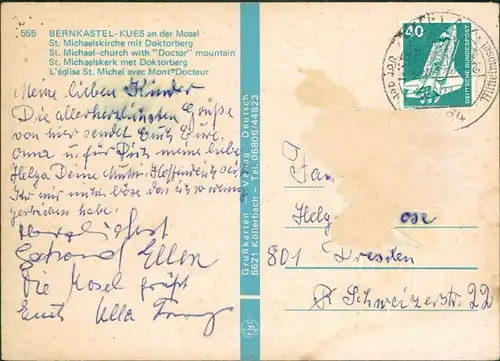 555 BERNKASTEL-KUES an der Mosel
St. Michaelskirche mit Doktorberg
St. Michael-church with "Doctor" mountain
St. Michaelskerk met Doktorberg
L'église St. Michel avec Mont "Docteur"
Meine lieben Kinder
Die allerherzlichsten Grüße
von hier sendet Euch Eure
Oma u. für Dich meine liebe
Helga Deine Mutti. Hoffentlich seid
Ihr mir nicht böse das ich so wenig
geschrieben habe.
Herzlichst
Gertraud Ellen
Die Mosel grüßt
Euch Ulla
Grußkarten - Verlag Deutsch
6621 Köllerbach - Tel. 06806/44823
40
DEUTSCHE BUNDESPOST
Fam
Helg ose
801 Dresden
Schweizerstr. 22